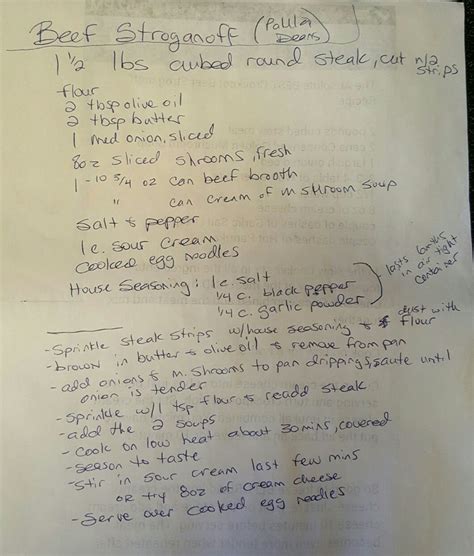 Beef Stroganoff (Paula Deens)
1 1/2 lbs cubed round steak, cut n/2 strips
flour
2 tbsp olive oil
2 tbsp butter
1 med onion, sliced
8oz sliced shrooms, fresh
1 - 10 3/4 oz can beef brooth
" can cream of mushroom soup
salt & pepper
1 c. sour cream
cooked egg noodles
House Seasoning: 1 c. salt
1/4 c. black pepper
1/4 c. garlic powder
lasts 6mnths
in air tight
container
- Sprinkle steak strips w/house seasoning & dust with flour
- brown in butter & olive oil & remove from pan
- add onions & m. shrooms to pan drippings, saute until
onion is tender
- sprinkle w/1 tsp. flour & readd steak
- add the 2 soups
- cook on low heat about 30 mins, covered
- season to taste
- stir in sour cream last few mins
or try 8oz of cream cheese
- serve over cooked egg noodles